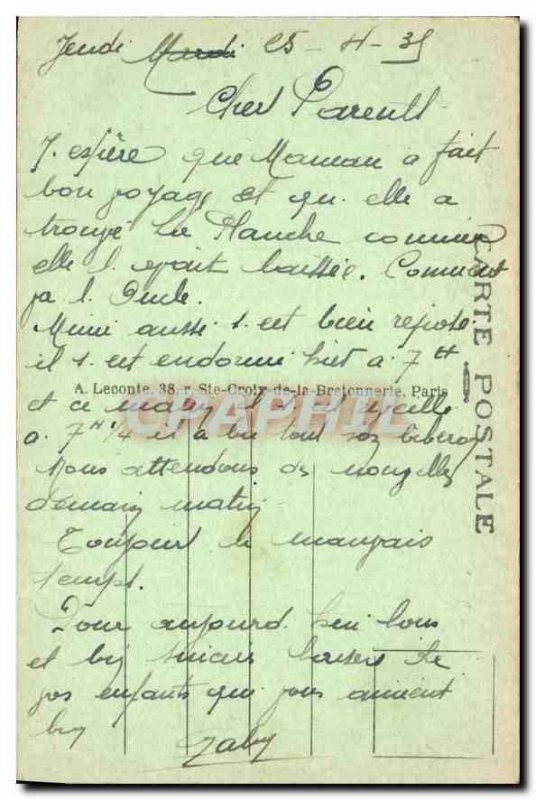 Jeudi Mardi 25 - 4 - 35
Cher Parents
J. espère que Maman a fait
bon voyage et qu. elle a
trouvé La Planche comme
elle l. avait laissée. Comment
va l. Oncle.
Mimi aussi s. est bien reposé
il s. est endormi hier a. 7 H
A. Leconte, 38, r. Ste-Croix-de-la-Bretonnerie, Paris
et ce matin réveille
a. 7 H 1/4 il a bu tout son biberon
Nous attendons des nouvelles
demain matin
Toujours le mauvais
temps.
Pour aujourd. hui bons
et bien baisers de
vos enfants qui vous aiment
bien
CARTE POSTALE
CPAPHIL